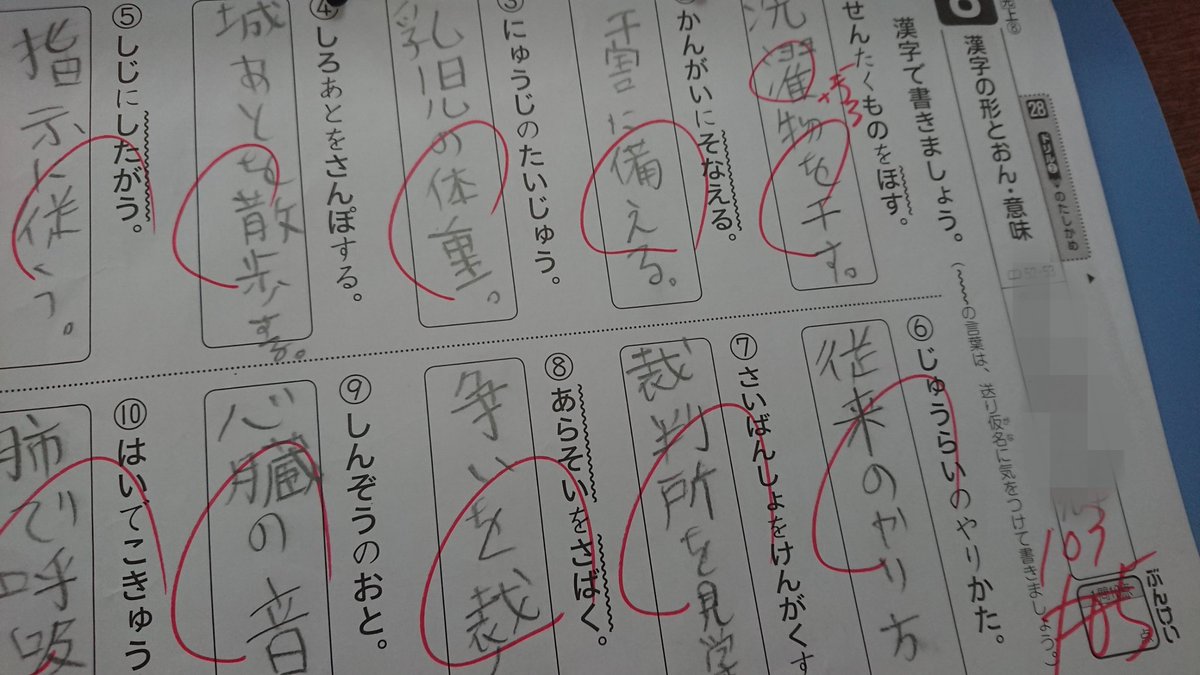 漢字の形とおん・意味
28
のたしかめ
漢字で書きましょう。
(〰〰の言葉は、送り仮名に気をつけて書きましょう。)
せんたくものをほす。
洗濯物を干す。
+5
3
かんがいにそなえる。
干害に備える。
③にゅうじのたいじゅう。
乳児の体重。
④しろあとをさんぽする。
城あとを散歩する。
⑤しじにしたがう。
指示に従う。
⑥じゅうらいのやりかた。
従来のやり方
⑦さいばんしょをけんがくす
裁判所を見学
⑧あらそいをさばく。
争いを裁
⑨しんぞうのおと。
心臓の音
⑩はいでこきゅう
肺で呼吸
103
105
点